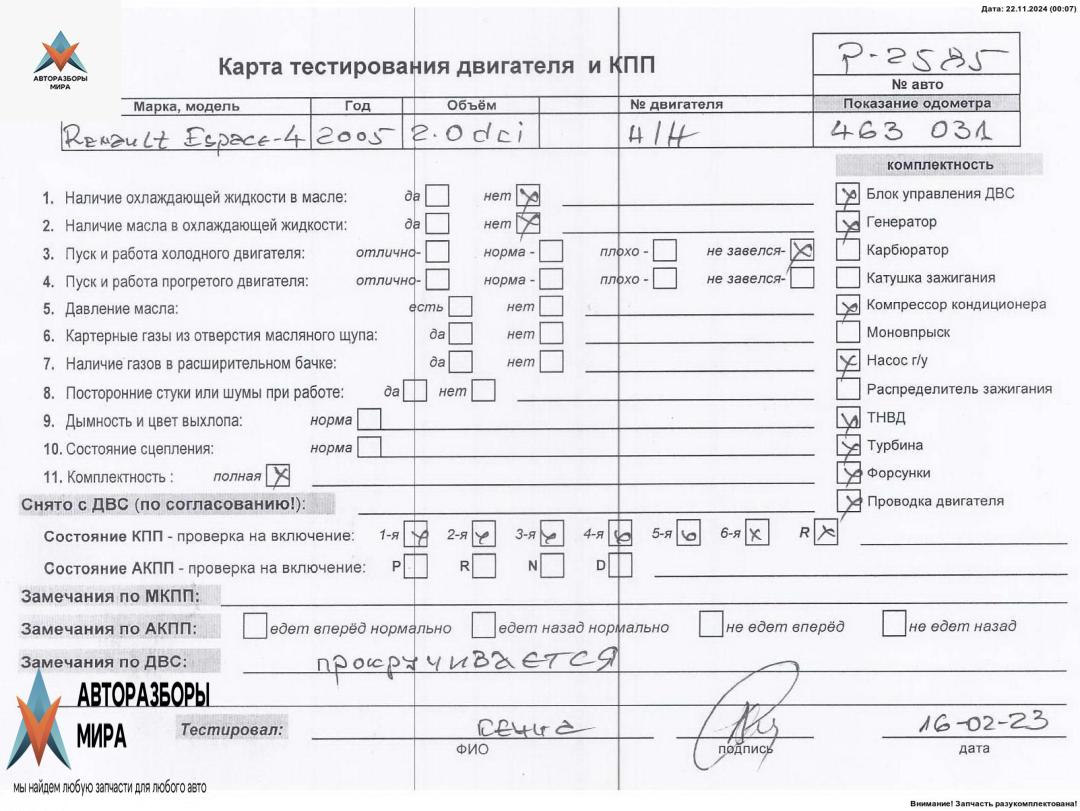 Дата: 22.11.2024 (00:07)
АВТОРАЗБОРЫ
МИРА
Карта тестирования двигателя и КПП
P-2585
№ авто
Марка, модель Год Объём № двигателя Показание одометра
Renault Espace-4 2005 2.0dci 463 031
комплектность
1. Наличие охлаждающей жидкости в масле: да нет
Блок управления ДВС
2. Наличие масла в охлаждающей жидкости: да нет
Генератор
3. Пуск и работа холодного двигателя: отлично- норма - плохо - не завелся-
Карбюратор
4. Пуск и работа прогретого двигателя: отлично- норма - плохо - не завелся-
Катушка зажигания
5. Давление масла: есть нет
Компрессор кондиционера
6. Картерные газы из отверстия масляного щупа: да нет
Моновпрыск
7. Наличие газов в расширительном бачке: да нет
Насос г/у
8. Посторонние стуки или шумы при работе: да нет
Распределитель зажигания
9. Дымность и цвет выхлопа: норма
ТНВД
10. Состояние сцепления: норма
Турбина
11. Комплектность : полная
Форсунки
Снято с ДВС (по согласованию!):
Проводка двигателя
Состояние КПП - проверка на включение: 1-я 2-я 3-я 4-я 5-я 6-я R
Состояние АКПП - проверка на включение: P R N D
Замечания по МКПП:
Замечания по АКПП: едет вперёд нормально едет назад нормально не едет вперёд не едет назад
Замечания по ДВС: прокручивается
АВТОРАЗБОРЫ
МИРА
мы найдем любую запчасти для любого авто
Тестировал: 16-02-23
ФИО подпись дата
Внимание! Запчасть разукомплектована!